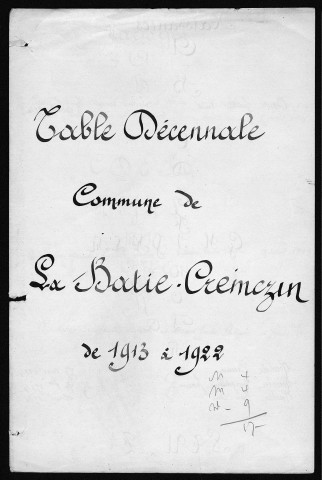 Table Décennale
Commune de
La Batie-Cremezin
de 1913 à 1922
N 4
M 4
D - 9
17